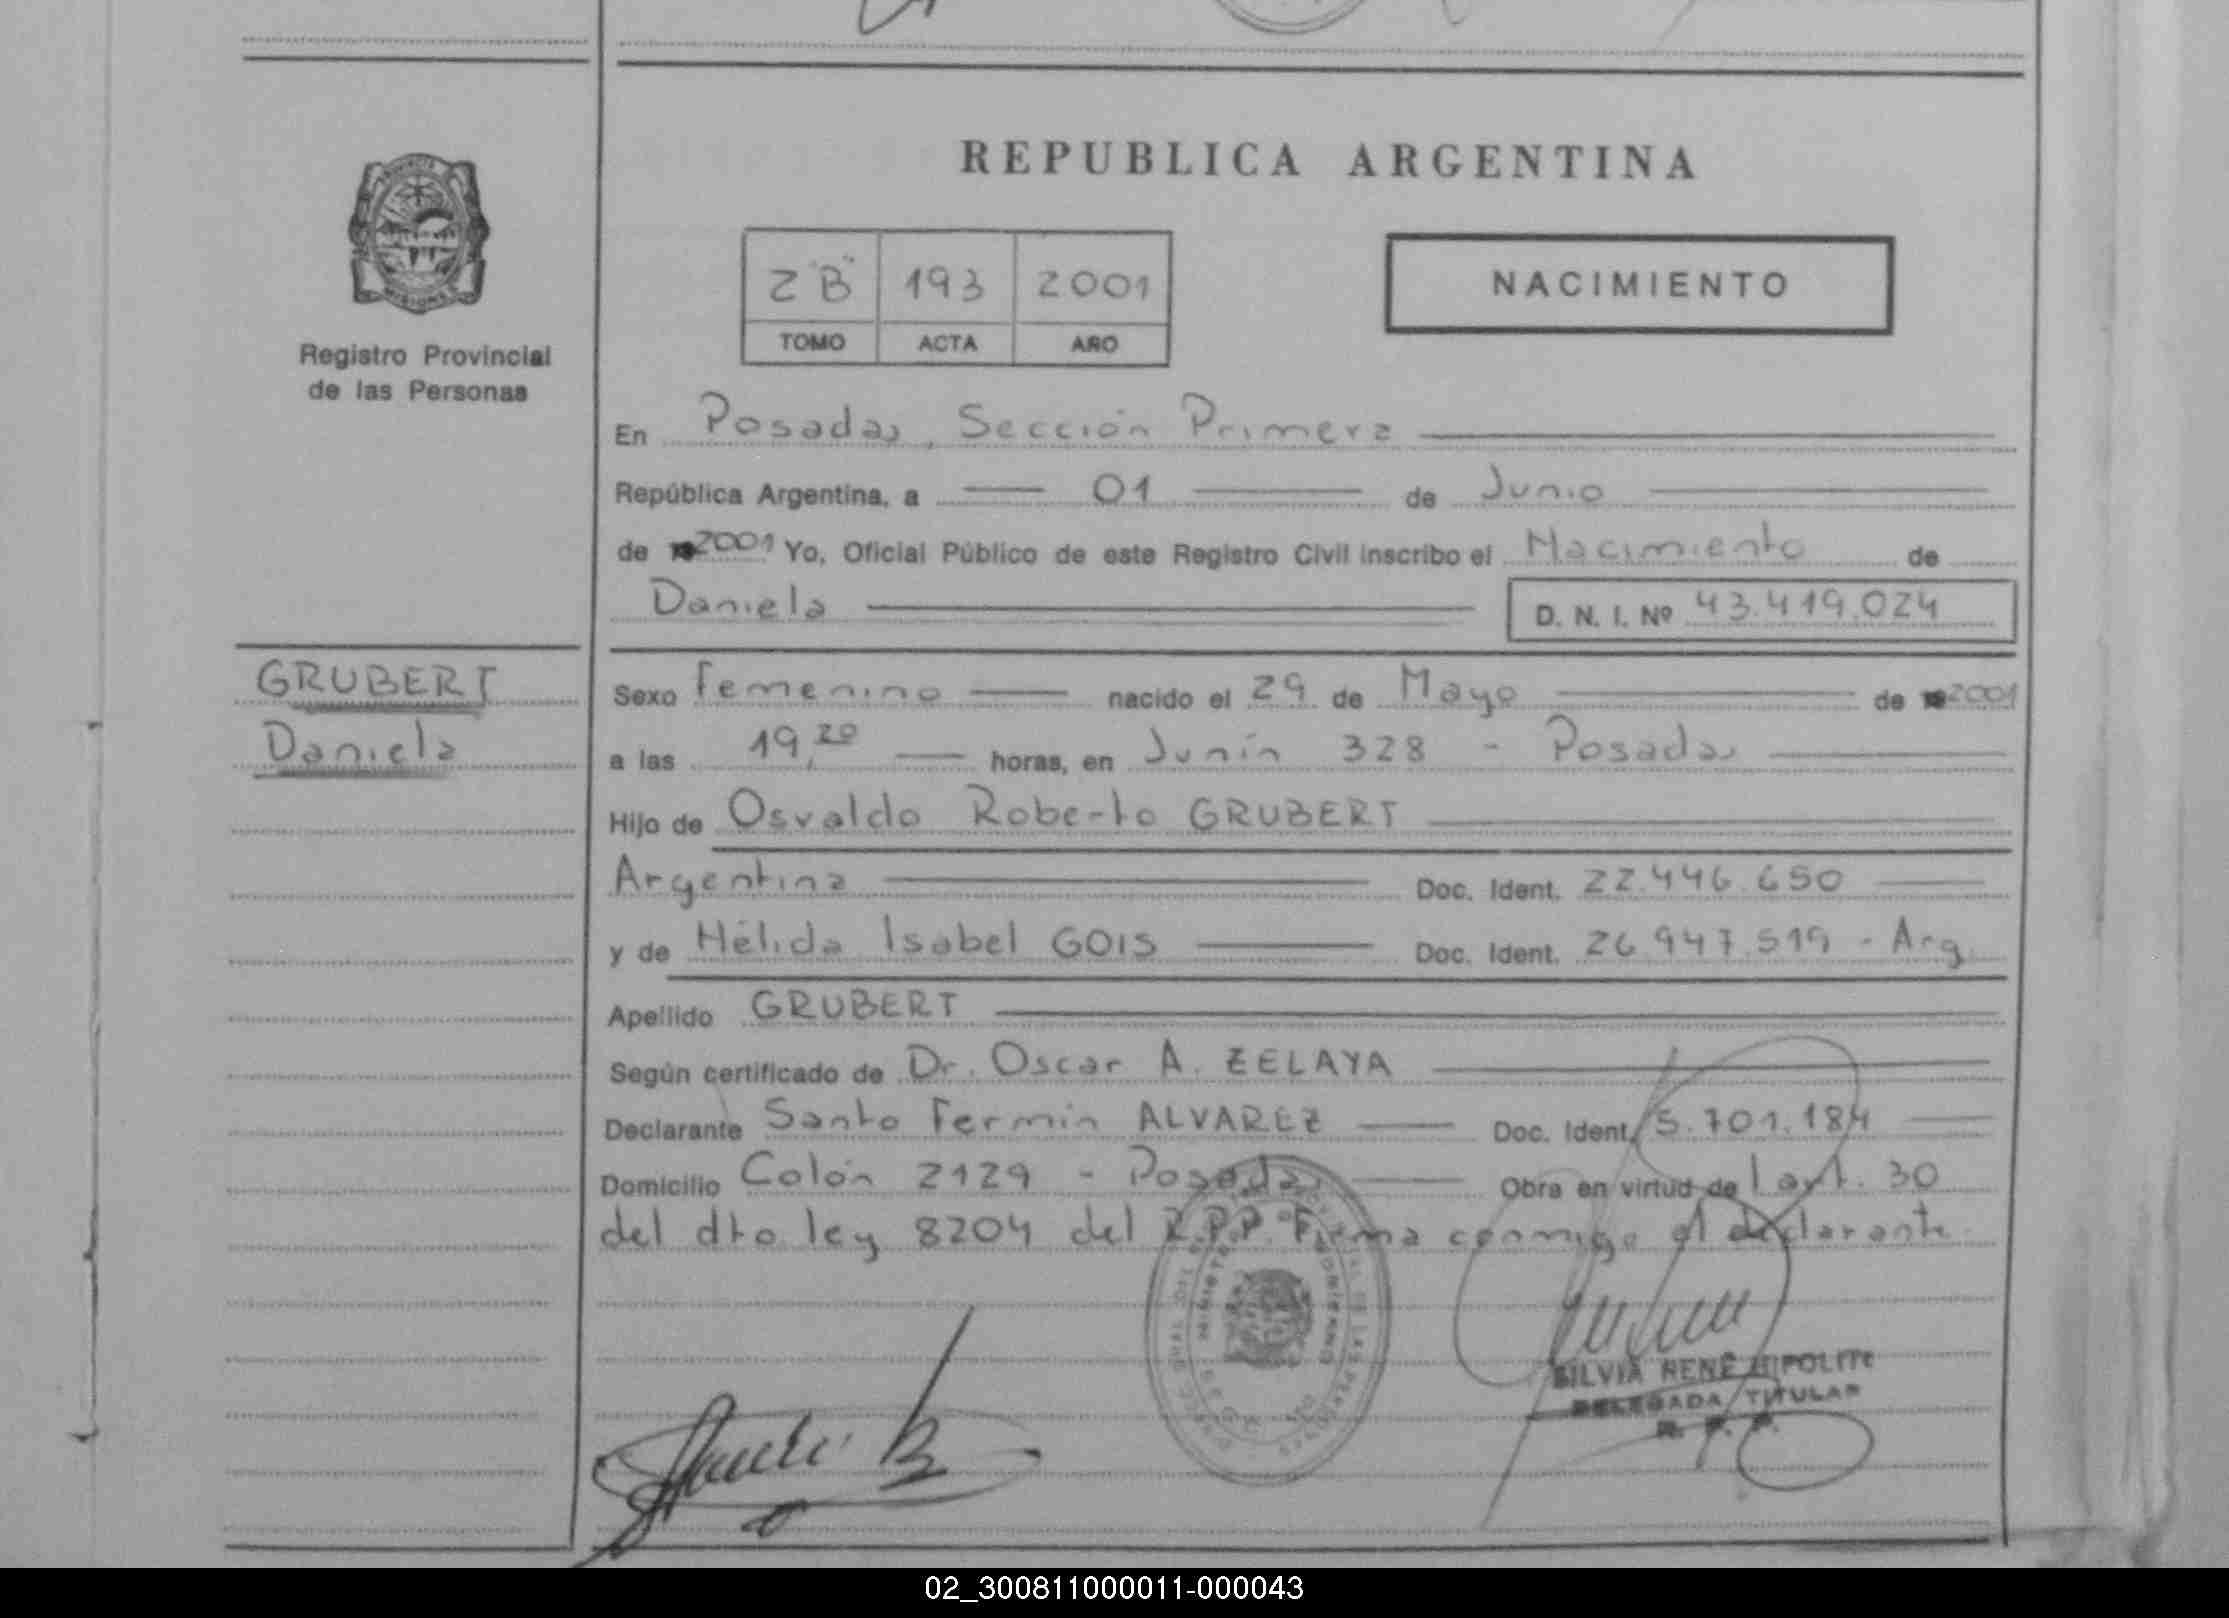 REPUBLICA ARGENTINA
PROVINCIA
MISIONES
Registro Provincial
de las Personas
2 "B" 193 2001
TOMO ACTA AÑO
NACIMIENTO
En Posadas, Sección Primera
República Argentina, a 01 de Junio
de 2001 Yo, Oficial Público de este Registro Civil inscribo el Nacimiento de
Daniela D. N. I. Nº 43.419.024
GRUBERT
Daniela
Sexo Femenino nacido el 29 de Mayo de 2001
a las 19,20 horas, en Junín 328 - Posadas
Hijo de Osvaldo Roberto GRUBERT
Argentina Doc. Ident. 22.446.650
y de Hélida Isabel GOIS Doc. Ident. 26.947.519 - Arg.
Apellido GRUBERT
Según certificado de Dr. Oscar A. ZELAYA
Declarante Santo Fermín ALVAREZ Doc. Ident. 5.701.184
Domicilio Colón 2129 - Posadas Obra en virtud de l art. 30
del dto. ley 8204 del R.P.P. Firma conmigo el declarante
SILVIA RENÉ HIPOLITO
DELEGADA TITULAR
R. P. P.
02_300811000011-000043